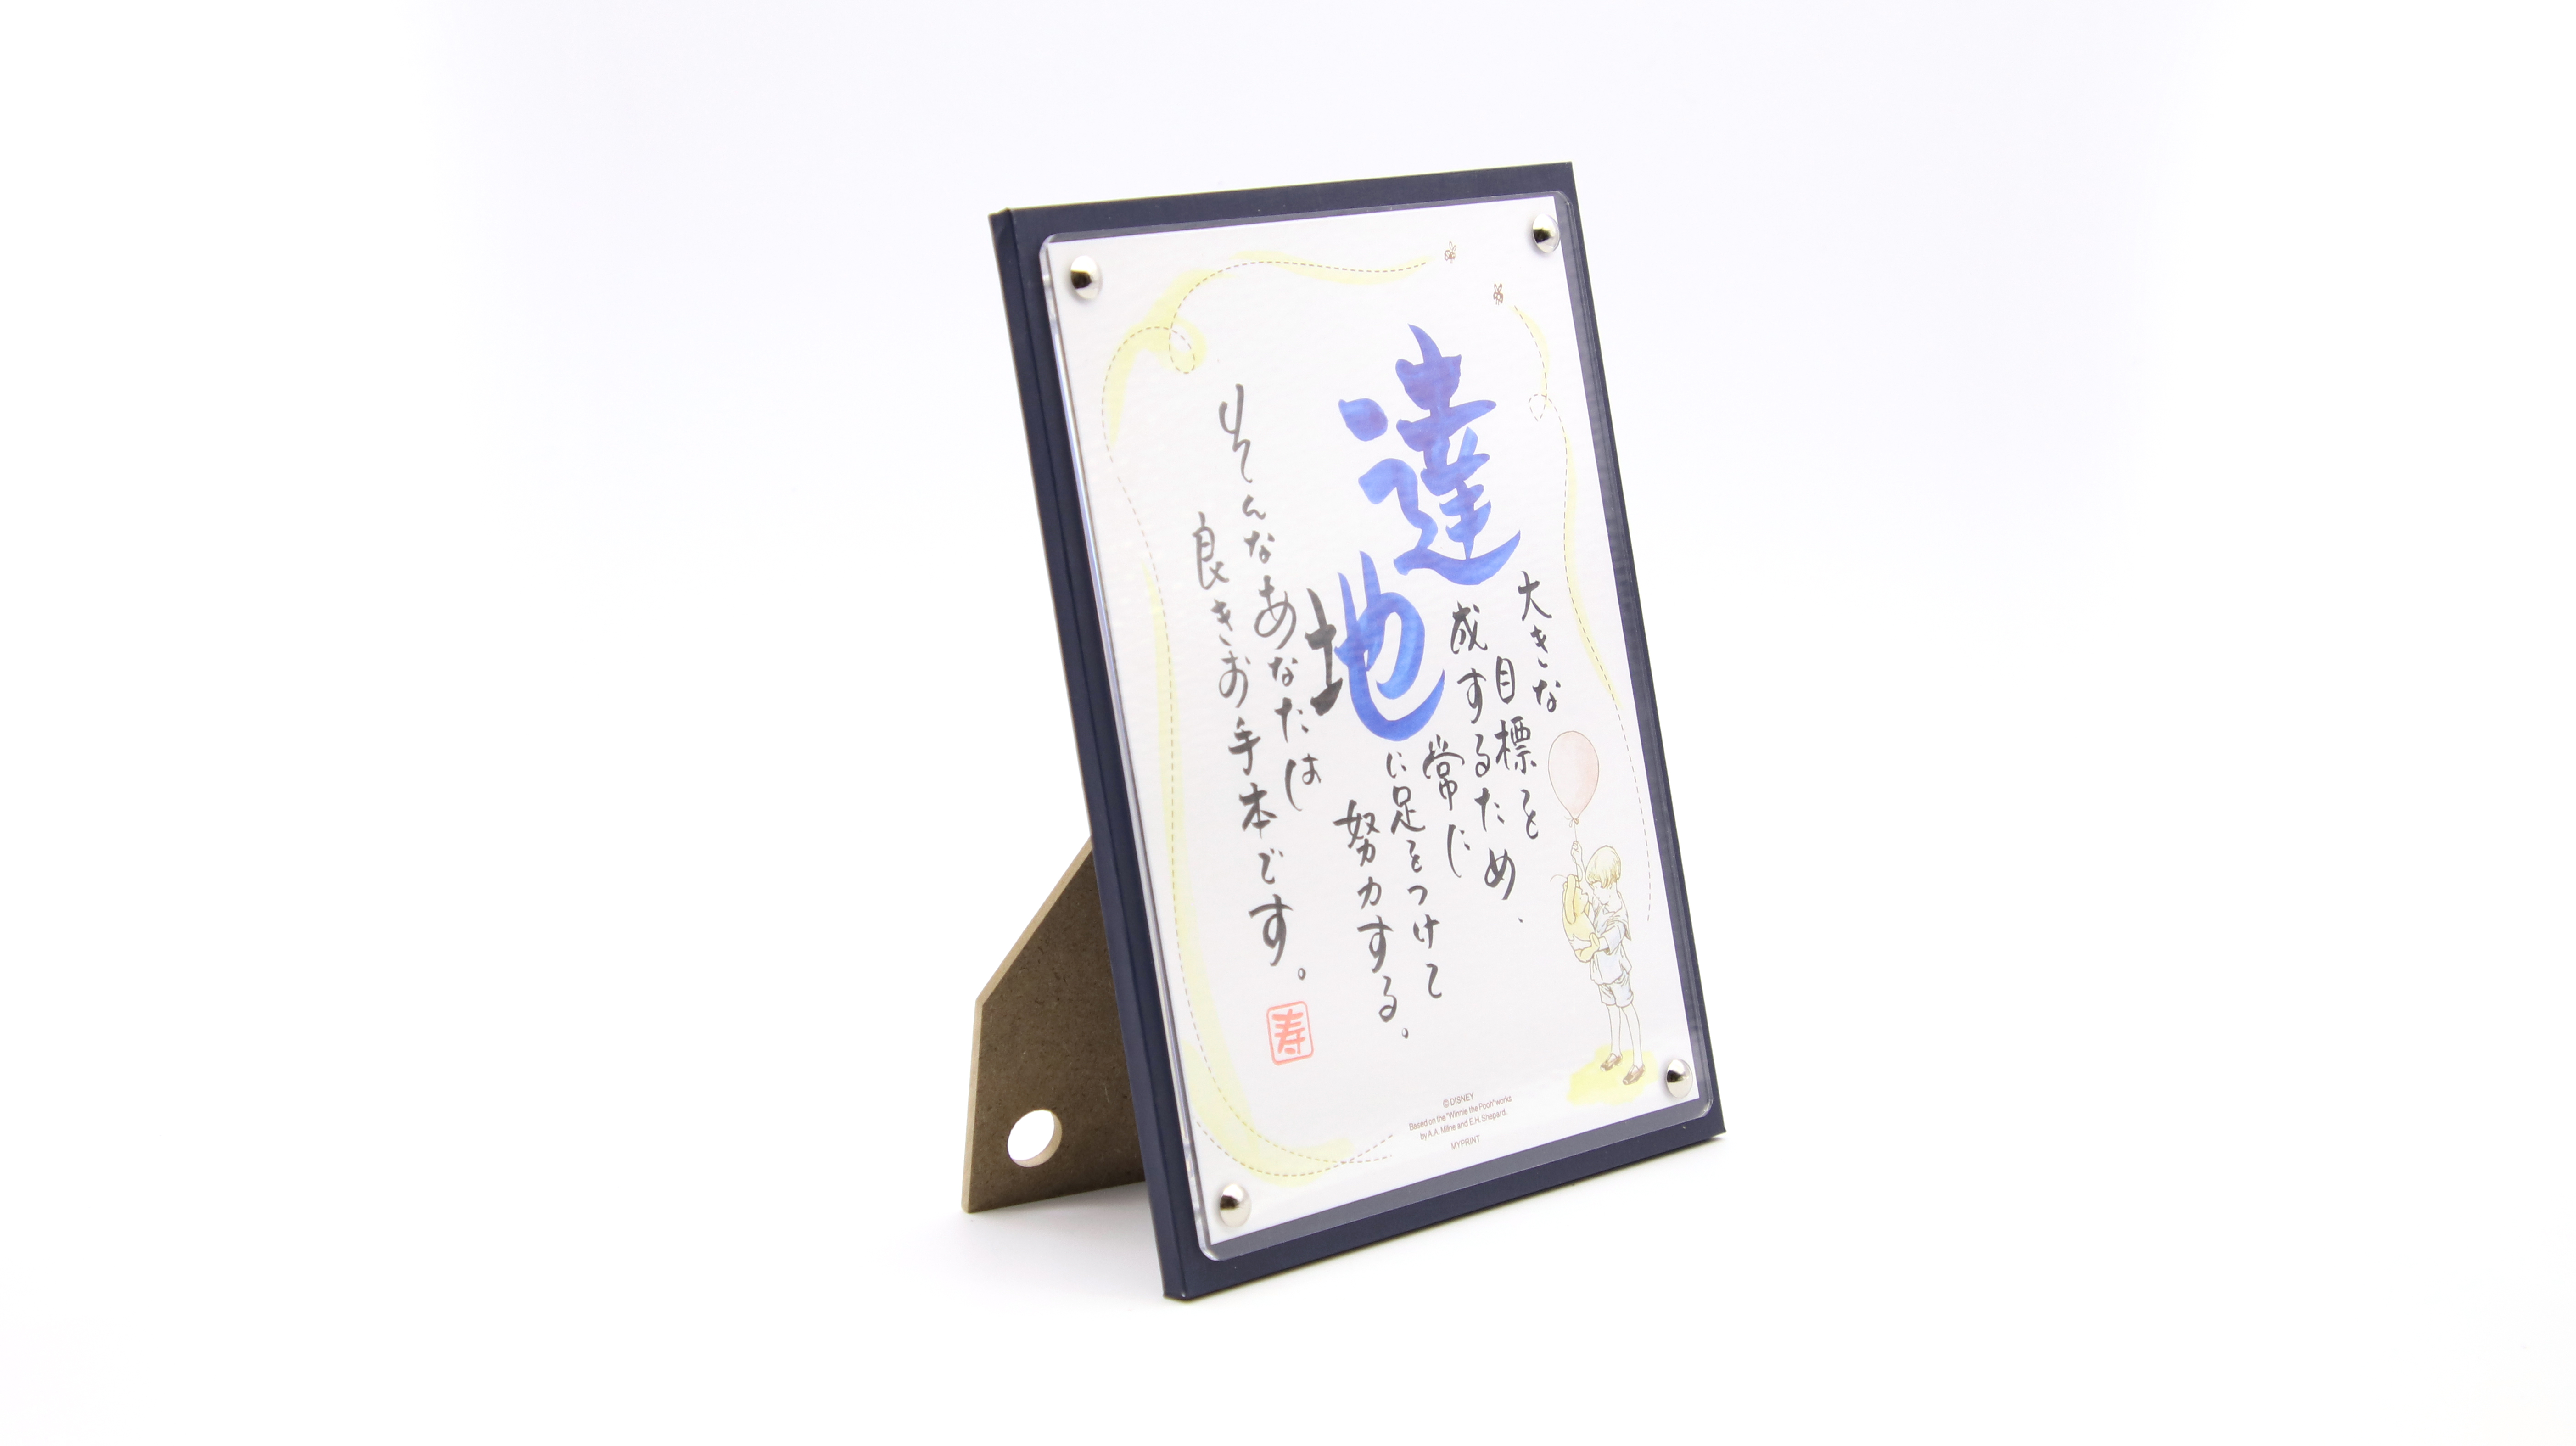 大きな
目標を
達成するため、
常に
地に足をつけて
努力する。
そんなあなたは
良きお手本です。
寿
© DISNEY
Based on the "Winnie the Pooh" works
by A.A. Milne and E.H. Shepard.
MYPRINT